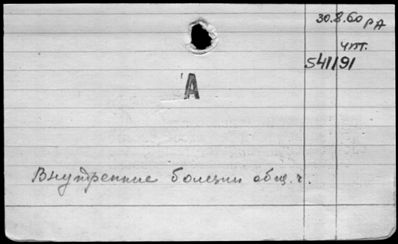 30.8.60 РА
чит.
541/91
А
Внутренние болезни общ. ч.